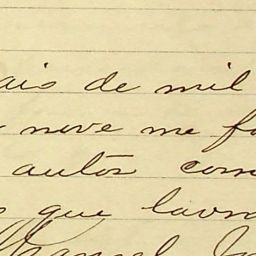 ais de mil
nove me fo
autos com
que lavr
Manoel Jo